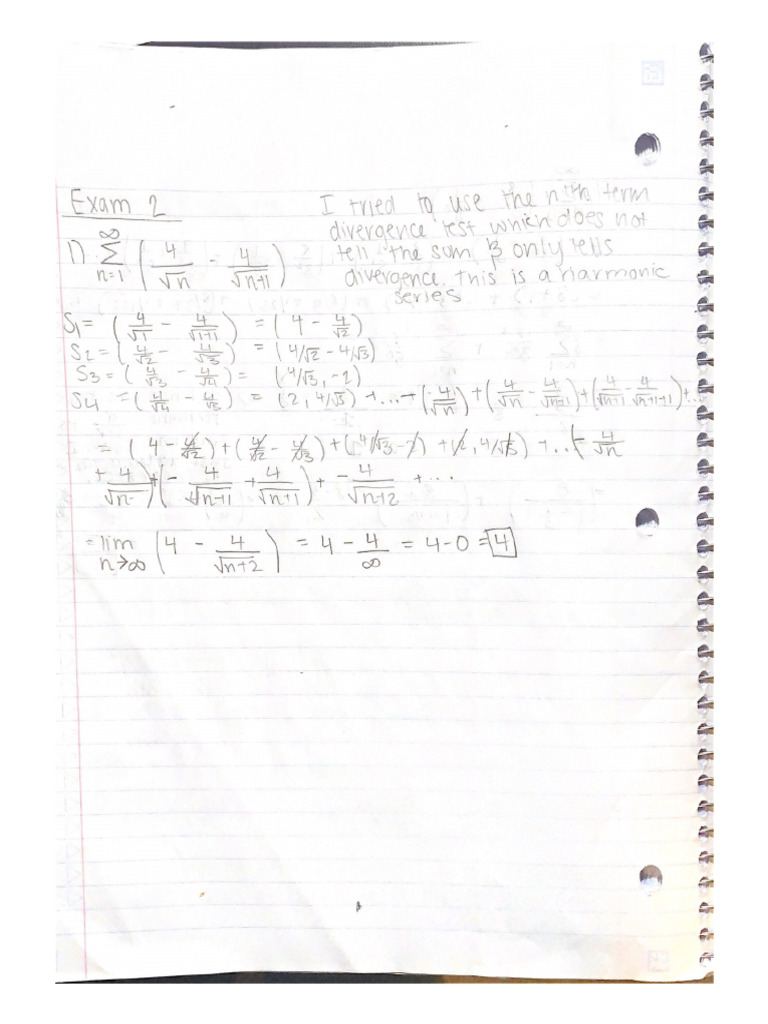 Exam 2
I tried to use the nth term
divergence test which does not
tell the sum & only tells
divergence. This is a harmonic
series
1) ∞ Σ n=1 ( 4/√n - 4/√n+1 )
S1 = ( 4/√1 - 4/√1+1 ) = ( 4 - 4/√2 )
S2 = ( 4/√2 - 4/√3 ) = ( 4/√2 - 4/√3 )
S3 = ( 4/√3 - 4/√4 ) = ( 4/√3, -2 )
S4 = ( 4/√4 - 4/√5 ) = ( 2, 4/√5 ) + ... + ( - 4/√n ) + ( 4/√n - 4/√n+1 ) + ( 4/√n+1 - 4/√n+1+1 ) + ...
= ( 4 - 4/√2 ) + ( 4/√2 - 4/√3 ) + ( 4/√3 - 2 ) + ( 2, 4/√5 ) + ... ( - 4/√n
+ 4/√n ) + ( - 4/√n+1 + 4/√n+1 ) + - 4/√n+2 + ...
= lim n→∞ ( 4 - 4/√n+2 ) = 4 - 4/∞ = 4 - 0 = 4